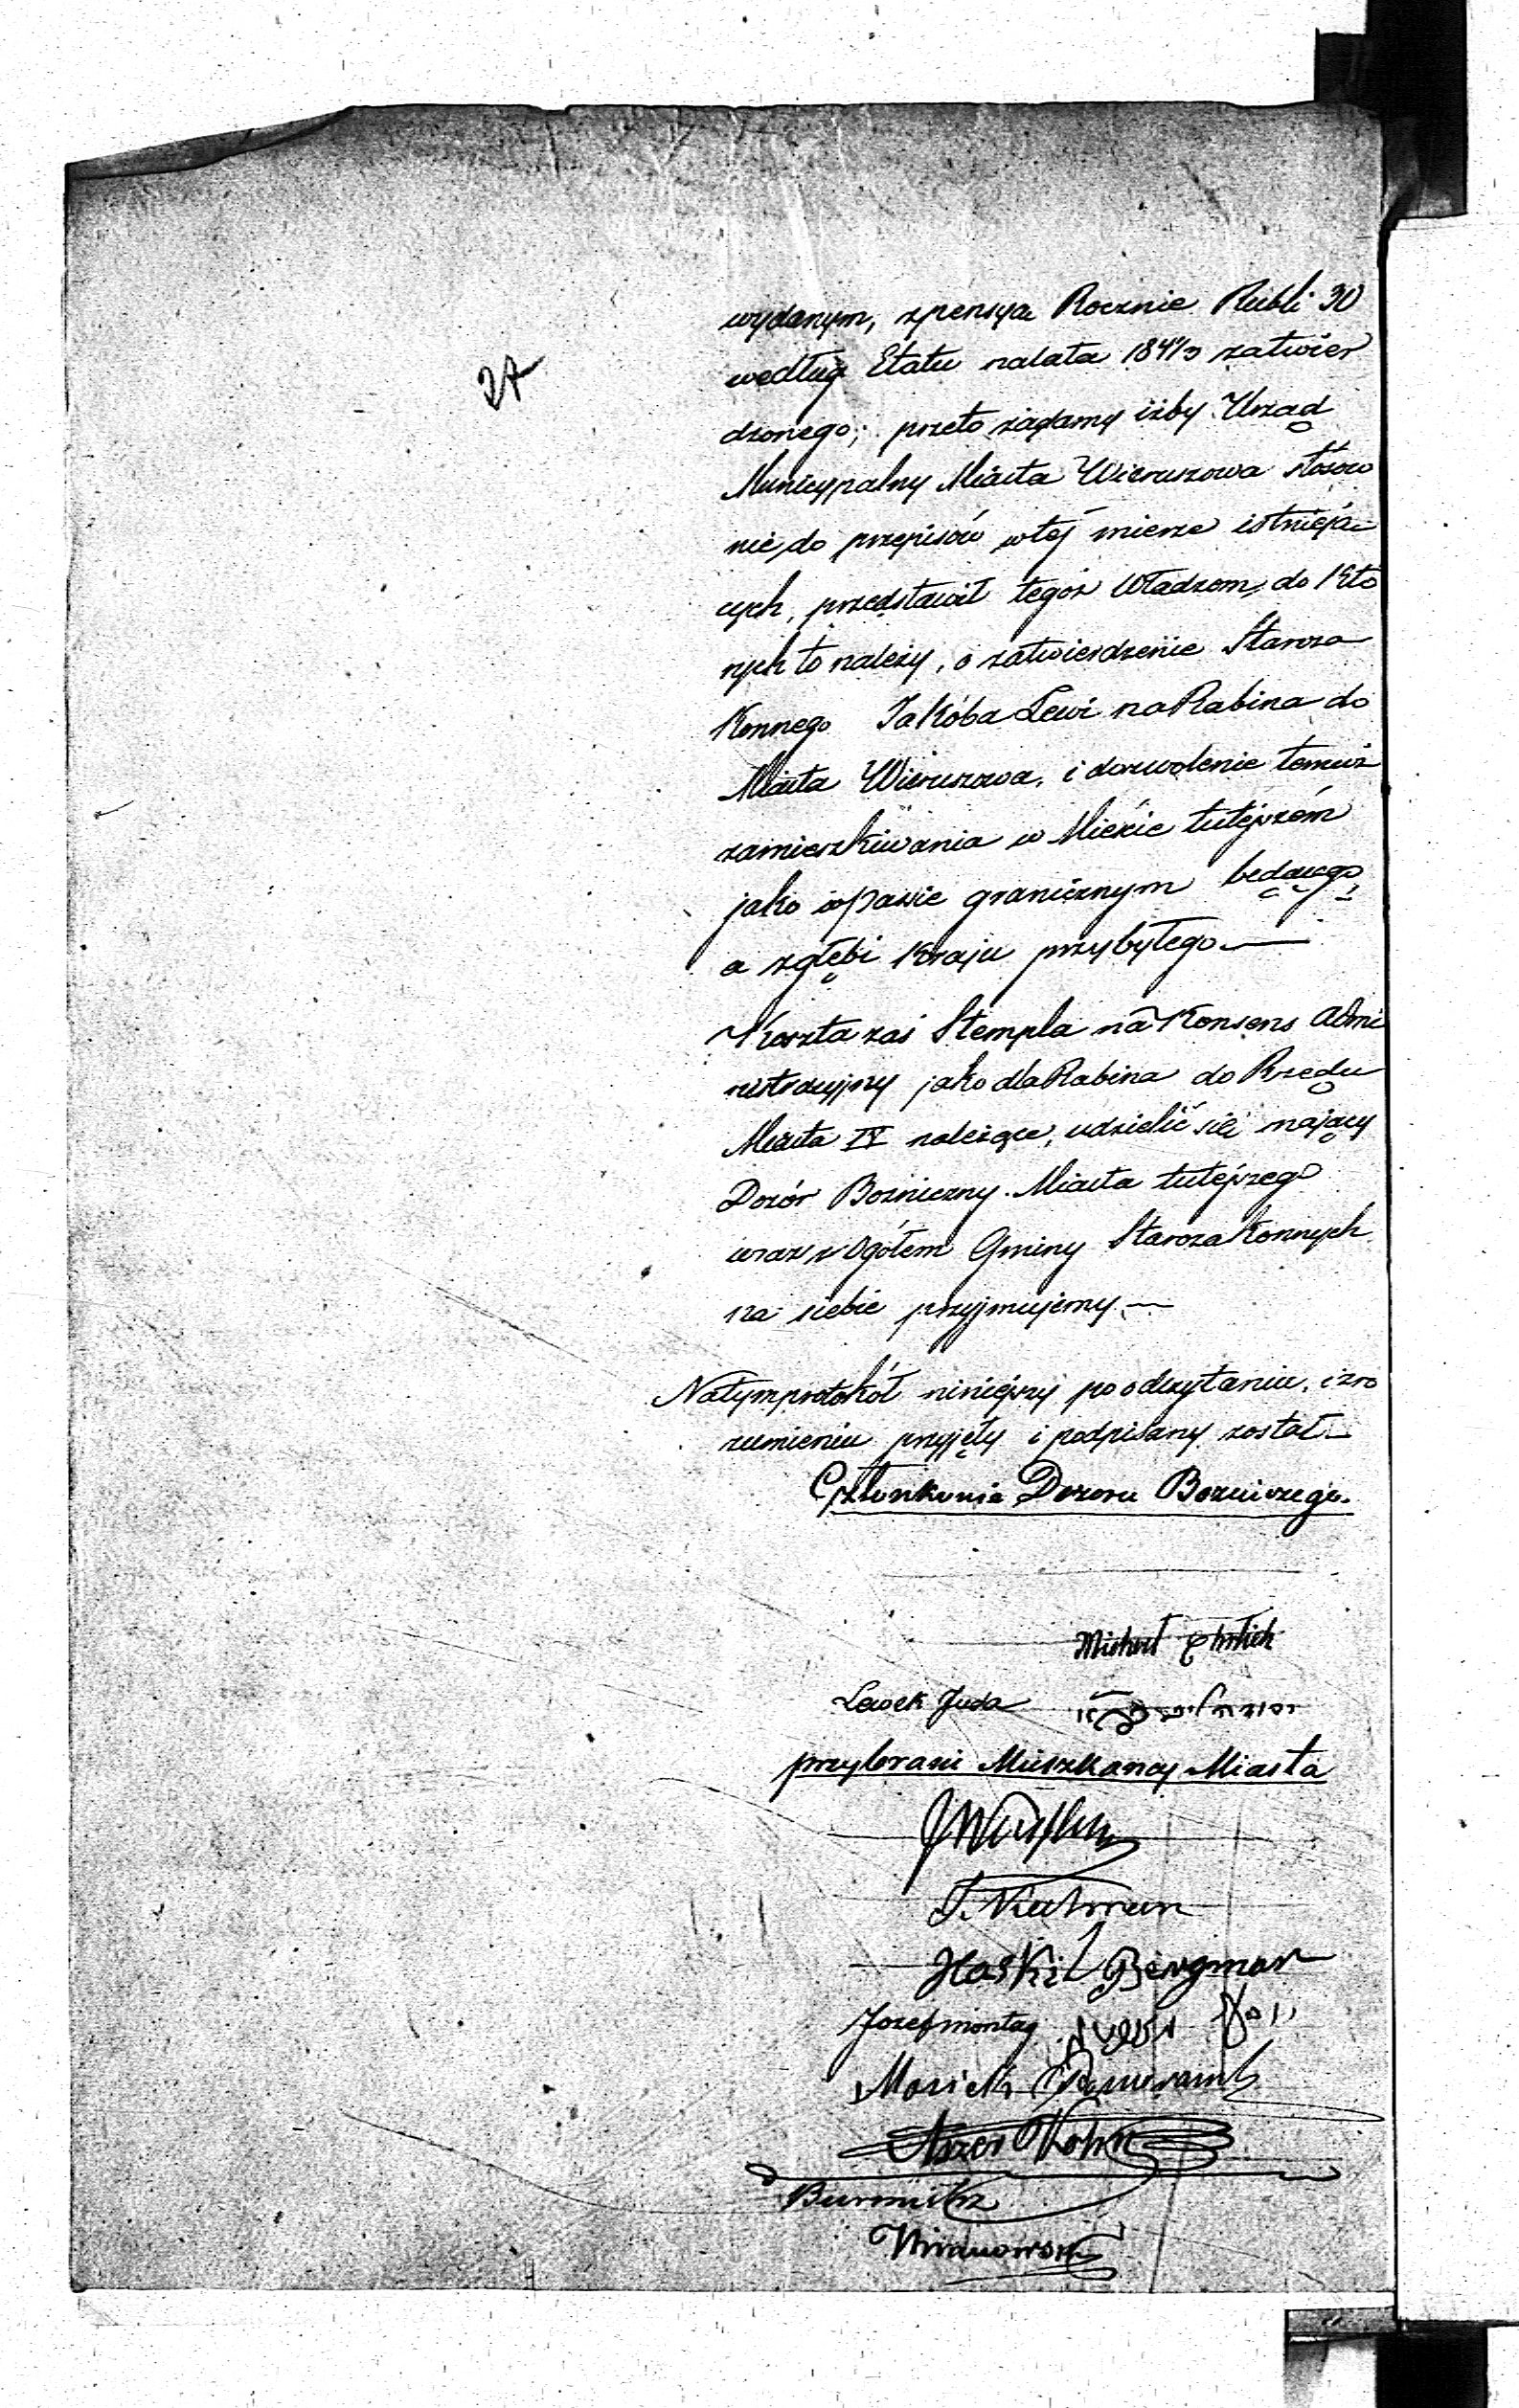 27
wydanym, z pensya Rocznie Rubli 30
według Etatu na lata 1841/3 zatwier
dzonego; przeto żądamy iżby Urząd
Municypalny Miasta Wieruszowa stosow
nie do przepisów w tej mierze istnieją-
cych, przedstawił tegoż Władzom, do Któ
rych to należy, o zatwierdzenie Staroza
Konnego Jakóba Lewi na Rabina do
Miasta Wieruszowa, i dozwolenie temuż
zamieszkiwania w Mieście tutejszém
jako w pasie granicznym będącego
a z głębi Kraju przybyłego —
Koszta zaś Stempla na Konsens Admi
nistracyjny jako dla Rabina do Rzędu
Miasta IV należące, udzielić się mający
Dozór Bożniczny Miasta tutejszego
wraz z Ogółem Gminy Starozakonnych
na siebie przyjmujemy —
Na tym protokół niniejszy po odczytaniu, i zro
zumieniu przyjęty i podpisany został —
Członkowie Dozoru Bożniczego.
Michael Ehrlich
Lewek Juda
przybrani Mieszkancy Miasta
Haskil Bergman
Josef montag
Mosiek
Aszer Kohn
Burmistrz